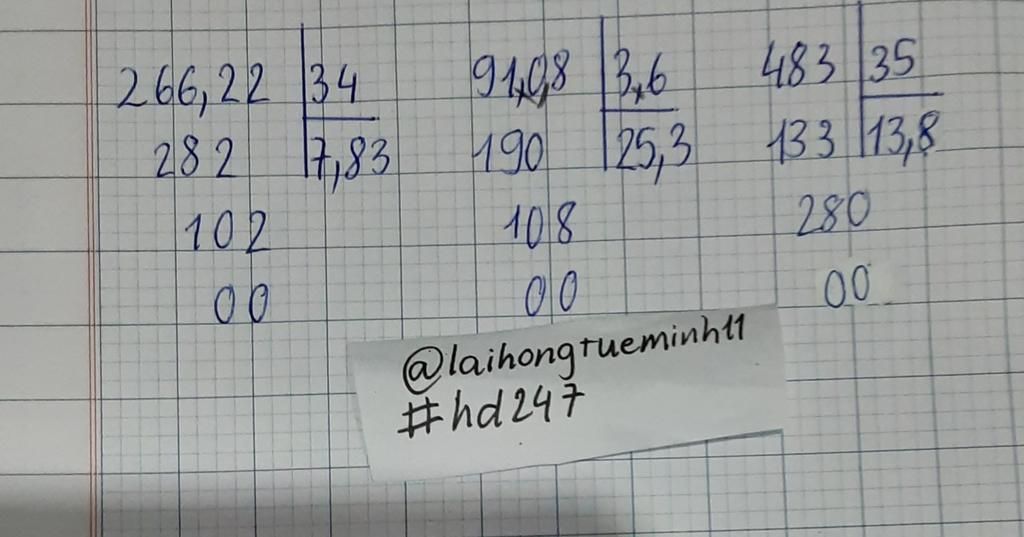 266,22 34 91,0,8 3,6 483 35
282 7,83 190 25,3 133 13,8
102 108 280
00 00 00
@laihongtueminh11
#hd247